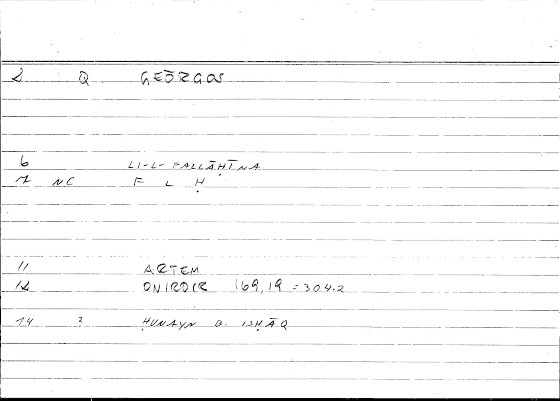 2 Q GEŌRGOS
6 LI-L-FALLĀḤĪNA
7 NC F L Ḥ
11 ARTEM
12 ONIROCR 169,19 = 304.2
14 ? ḤUNAYN B. ISḤĀQ